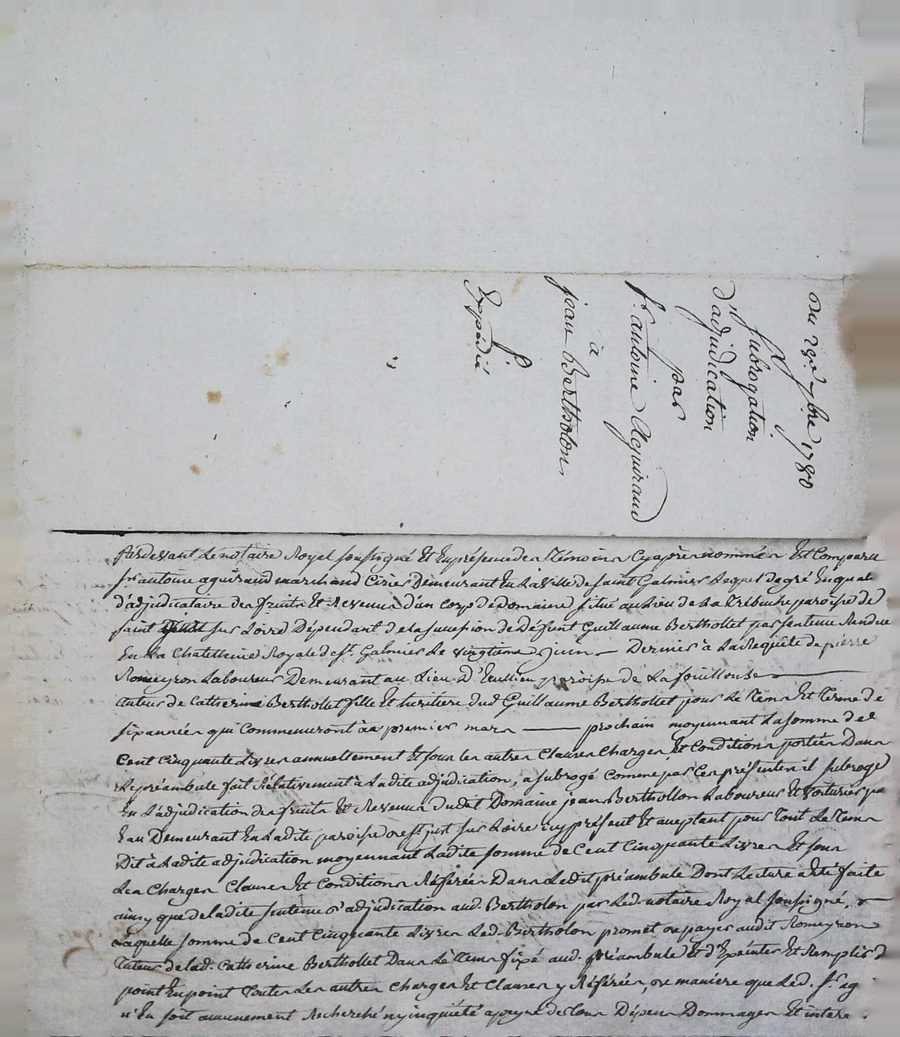 du 29e 7bre 1780
Subrogation
d'adjudication
par
sr. antoine aguiraud
à
jean Bertholon
Expédié
Pardevant Le notaire Royal soussigné Et En présence des Témoins Cyaprès nommés Est Comparu
sr. antoine aguiraud marchand Cirier Demeurant En La Ville de saint Galmier Lequel de gré En qualité
d'adjudicataire des fruits Et Revenus d'un corp de domaine situé au Lieu de La paroisse de
saint just sur Loire Dépendant de la succession de Défunt Guillaume Berthollet par sentence Rendue
En La Chatellenie Royale de st. Galmier Le vingtieme juin Dernier à La Requête de pierre
Romeyron Laboureur Demeurant au Lieu D' paroisse de La fouillouse
tuteur de Catherine Berthollet fille Et heritiere dud. Guillaume Berthollet pour Le Tems Et Terme de
six années qui Commenceront au premier mars prochain moyennant La somme de
Cent Cinquante Livres annuellement Et sous les autres Clauses Charges Et Conditions portées Dans
Le préambule fait Rélativement à Ladite adjudication, a subrogé Comme par Ces présentes il subroge
En L'adjudication des fruits Et Revenus dudit Domaine jean Berthollon Laboureur Et voiturier par
Eau Demeurant En Ladite paroisse de st. just sur Loire icy présent Et acceptant pour Tout Le Tems
Dit à Ladite adjudication moyennant Ladite somme de Cent Cinquante Livres Et sous
Les Charges Clauses Et Conditions Référées Dans Ledit préambule Dont Lecture a été faite
ainsy que de ladite sentence d'adjudication aud. Bertholon par Led. notaire Royal soussigné,
Laquelle somme de Cent Cinquante Livres Led. Bertholon promet de payer audit Romeyron
Tuteur de lad. Catherine Berthollet Dans Le Tems fixé aud. préambule Et Et Remplir d
point En point Toutes Les autres Charges Et Clauses y Référées, de maniere que Led. sr. ag
n'En soit aucunement Recherché ny inquiété a peyne de tous Dépens Dommages Et intere